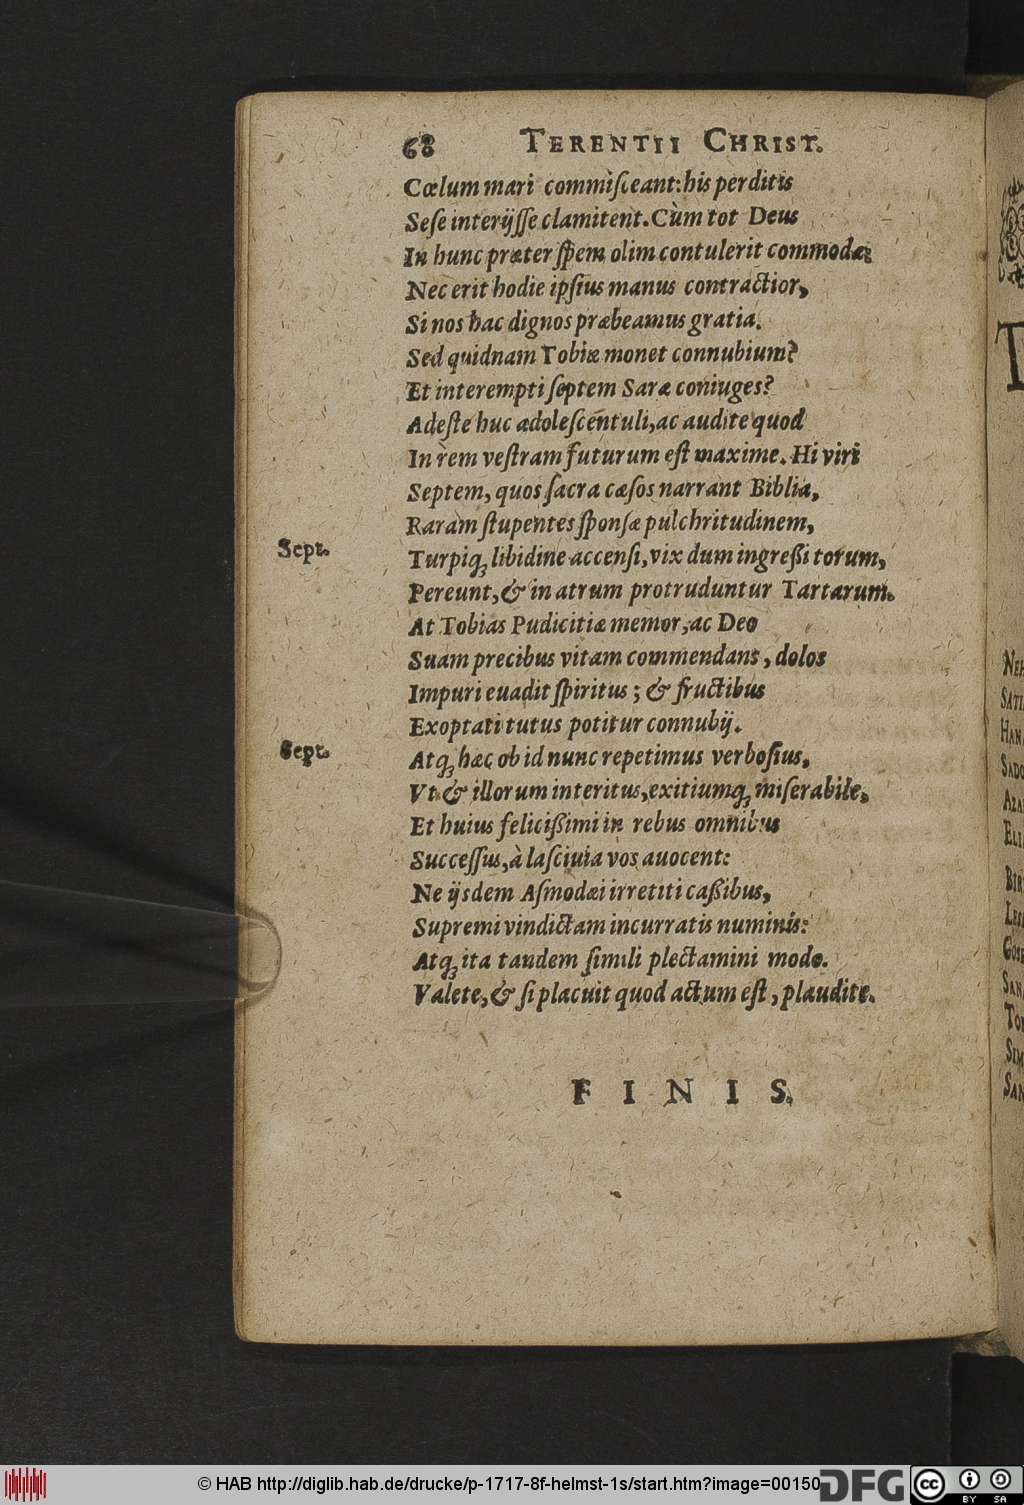 68 TERENTII CHRIST.
Cœlum mari commiſceant: his perditis
Seſe interijſſe clamitent. Cùm tot Deus
In hunc præter ſpem olim contulerit commoda;
Nec erit hodie ipſius manus contractior,
Si nos hac dignos præbeamus gratia.
Sed quidnam Tobiæ monet connubium?
Et interempti ſeptem Saræ coniuges?
Adeſte huc adoleſcentuli, ac audite quod
In rem veſtram futurum eſt maxime. Hi viri
Septem, quos ſacra cæſos narrant Biblia,
Raram ſtupentes ſponſæ pulchritudinem,
Sept. Turpiq́; libidine accenſi, vix dum ingreßi torum,
Pereunt, & in atrum protruduntur Tartarum.
At Tobias Pudicitiæ memor, ac Deo
Suam precibus vitam commendans, dolos
Impuri euadit ſpiritus; & fructibus
Exoptati tutus potitur connubij.
Sept. Atq́; hæc ob id nunc repetimus verboſius,
Vt & illorum interitus, exitiumq́; miſerabile,
Et huius felicißimi in rebus omnibus
Succeſſus, à laſciuia vos auocent:
Ne ijsdem Aſmodæi irretiti caßibus,
Supremi vindictam incurratis numinis:
Atq́; ita tandem ſimili plectamini modo.
Valete, & ſi placuit quod actum eſt, plaudite.
FINIS.
NEH
SATI
HAN
SADO
AZA
ELI
BIR
LESB
GOSB
SAN
TOB
SIM
SAN
© HAB http://diglib.hab.de/drucke/p-1717-8f-helmst-1s/start.htm?image=00150
DFG
cc BY SA